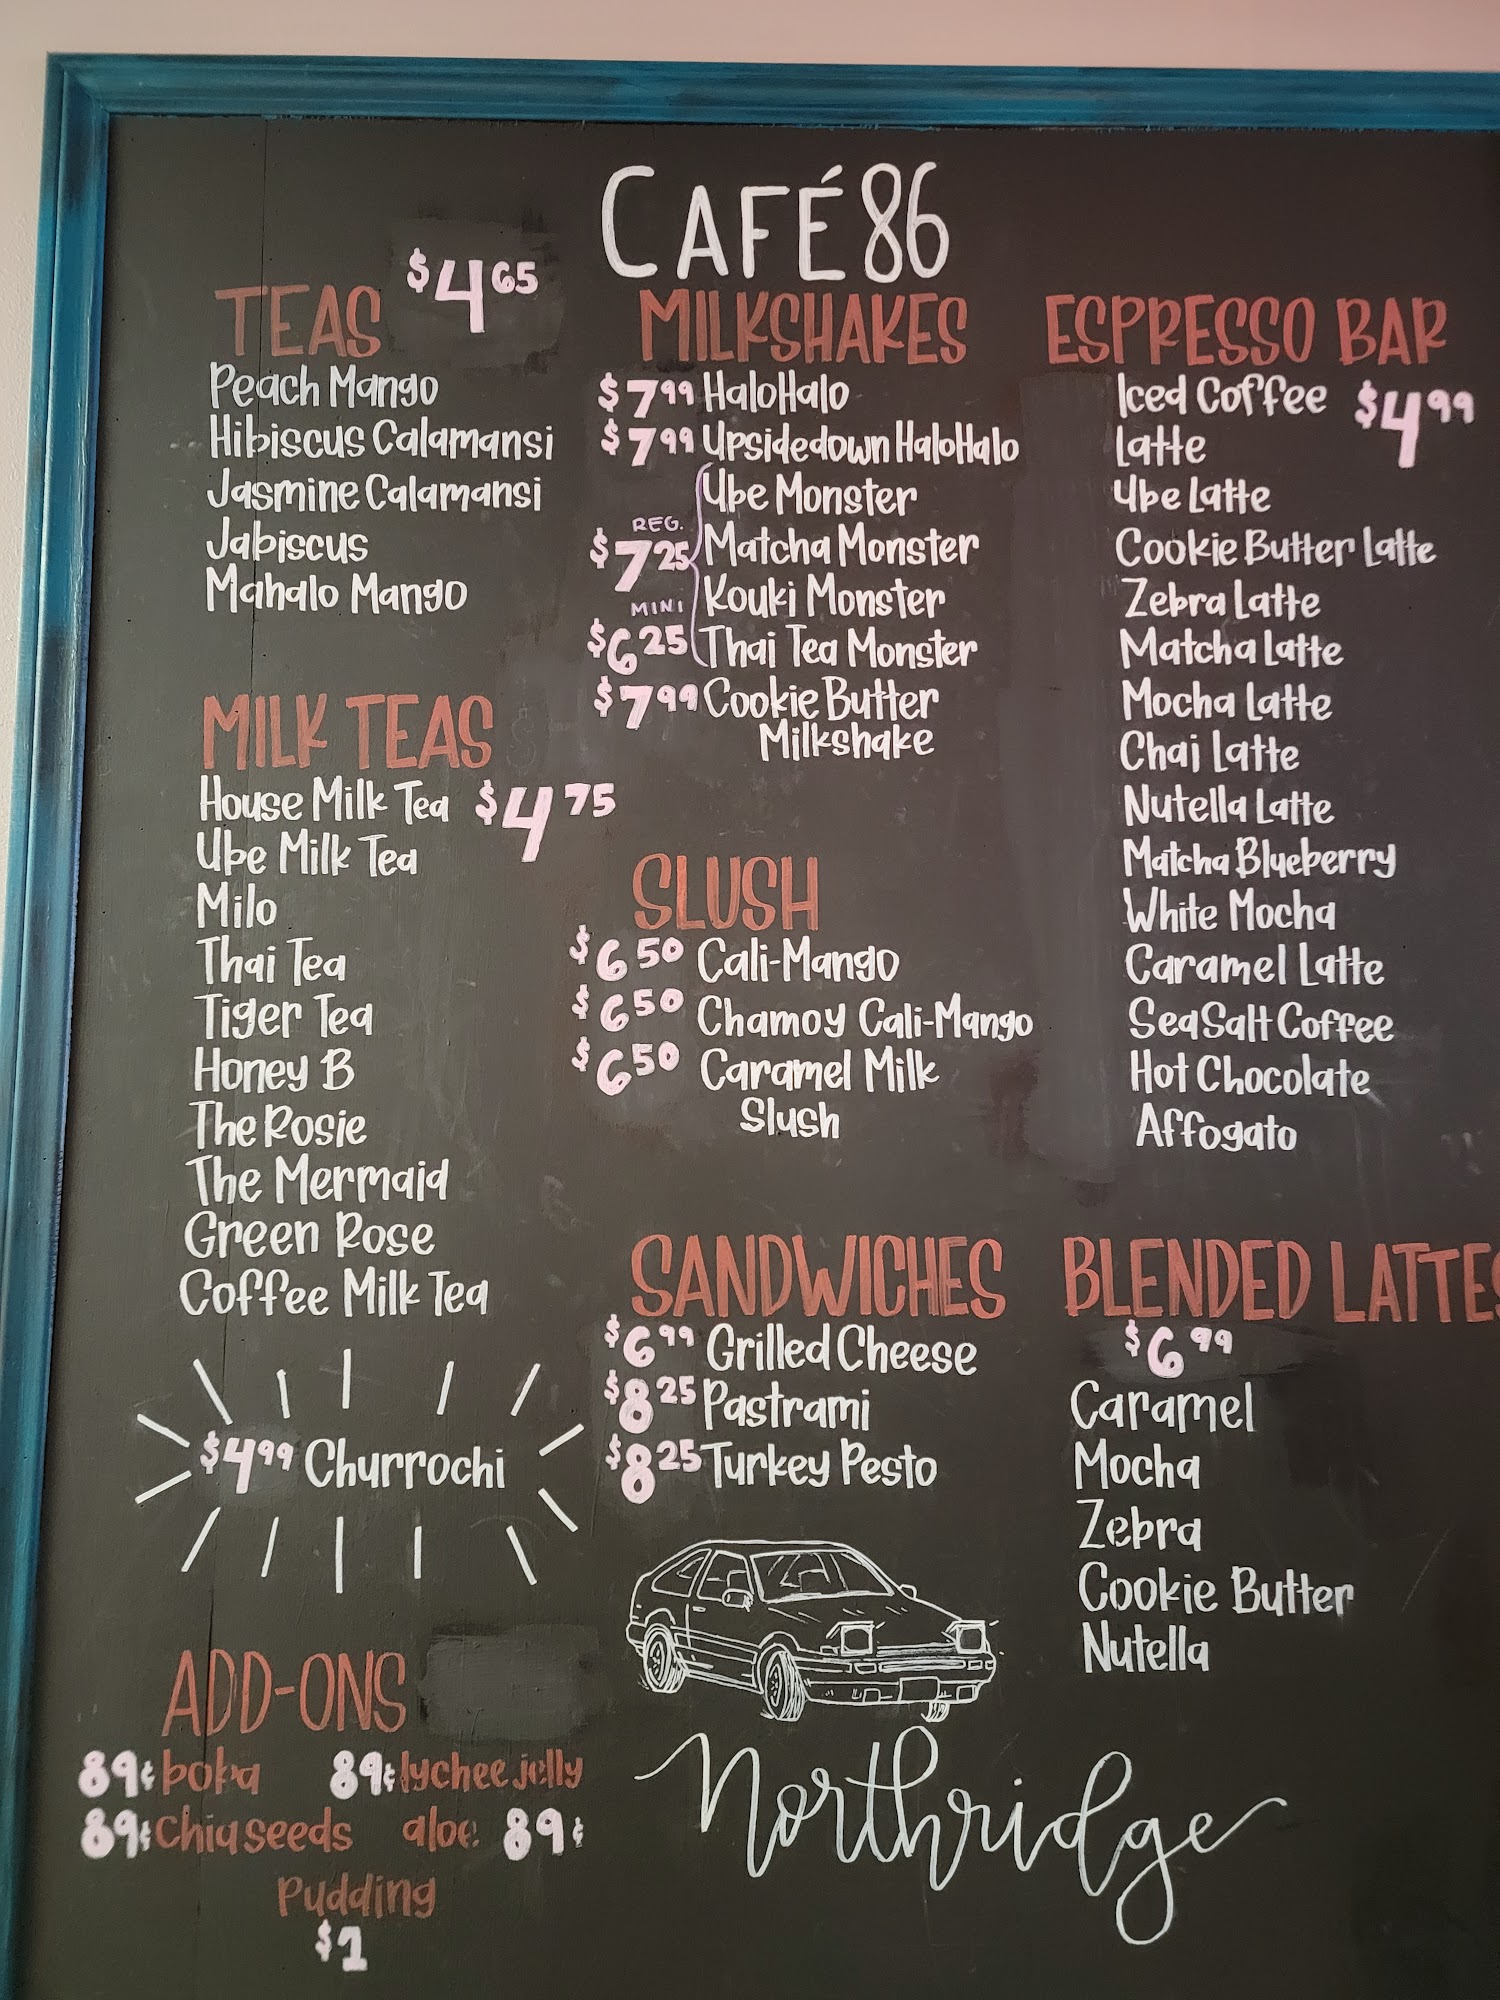 CAFÉ 86
TEAS $4.65
Peach Mango
Hibiscus Calamansi
Jasmine Calamansi
Jabiscus
Mahalo Mango
MILK TEAS
House Milk Tea $4.75
Ube Milk Tea
Milo
Thai Tea
Tiger Tea
Honey B
The Rosie
The Mermaid
Green Rose
Coffee Milk Tea
$4.99 Churrochi
ADD-ONS
89¢ boba 89¢ lychee jelly
89¢ Chia seeds aloe 89¢
Pudding
$1
MILKSHAKES
$7.99 HaloHalo
$7.99 Upsidedown HaloHalo
Ube Monster
REG.
$7.25 Matcha Monster
MINI Kouki Monster
$6.25 Thai Tea Monster
$7.99 Cookie Butter
Milkshake
SLUSH
$6.50 Cali-Mango
$6.50 Chamoy Cali-Mango
$6.50 Caramel Milk
Slush
SANDWICHES
$6.99 Grilled Cheese
$8.25 Pastrami
$8.25 Turkey Pesto
ESPRESSO BAR
Iced Coffee $4.99
Latte
Ube Latte
Cookie Butter Latte
Zebra Latte
Matcha Latte
Mocha Latte
Chai Latte
Nutella Latte
Matcha Blueberry
White Mocha
Caramel Latte
SeaSalt Coffee
Hot Chocolate
Affogato
BLENDED LATTES
$6.99
Caramel
Mocha
Zebra
Cookie Butter
Nutella
Northridge